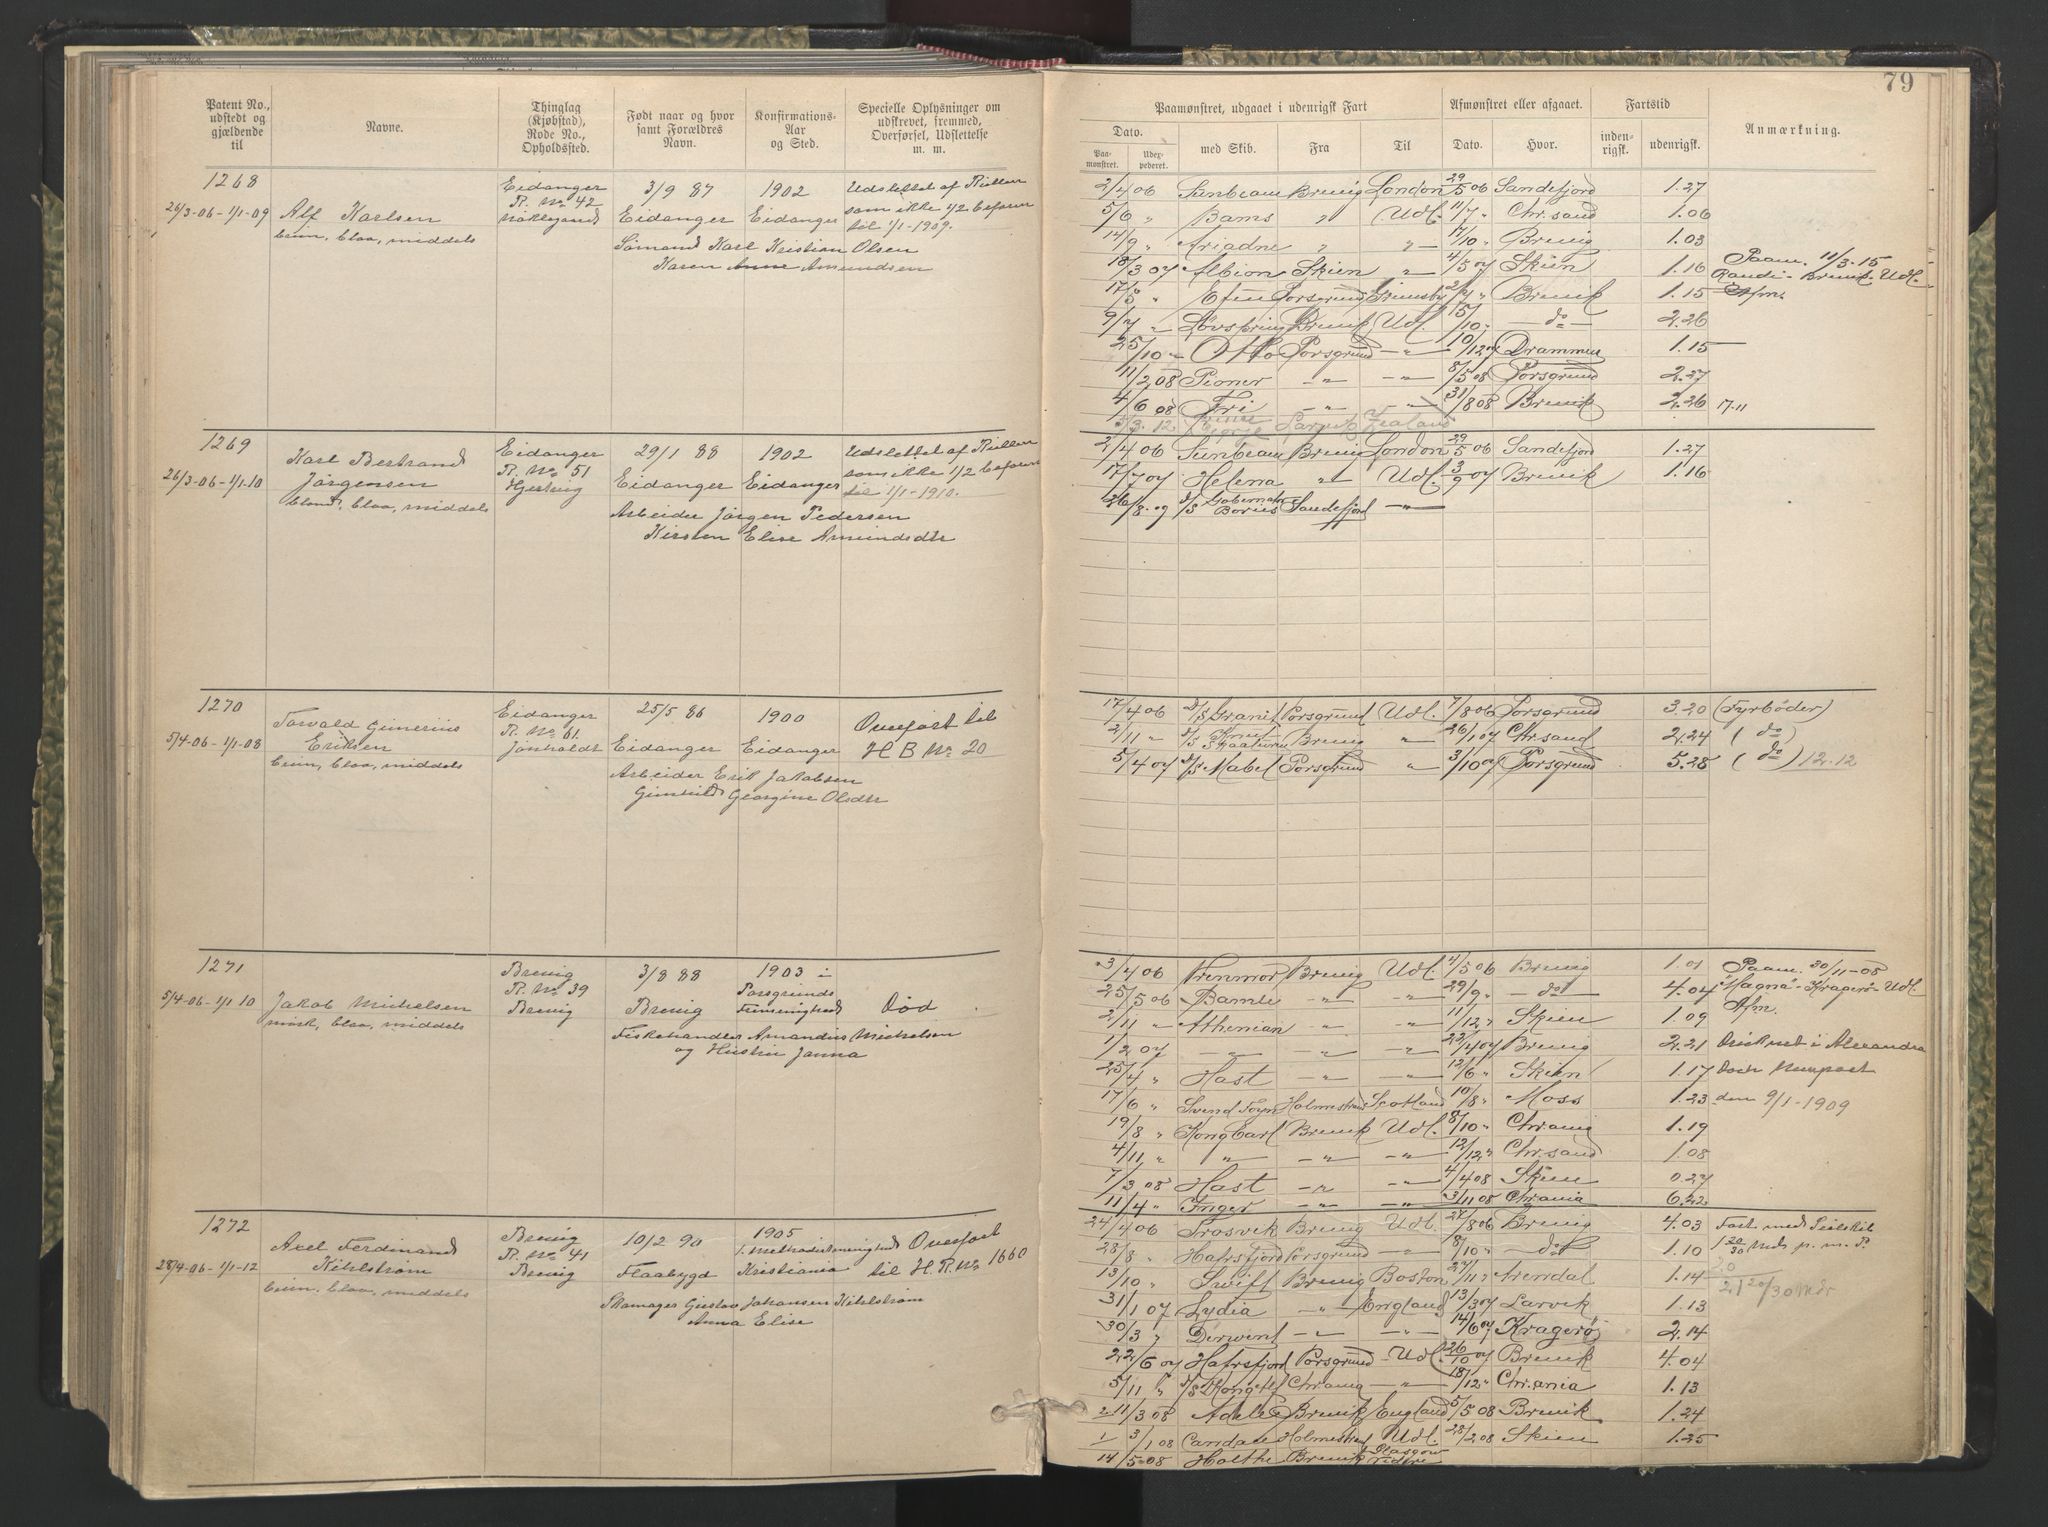 79
Patent No.,
udstedt og
gjældende
til
Navne.
Thinglag
(Kjøbstad),
Rode No.,
Opholdssted.
Født naar og hvor
samt Forældres
Navn.
Konfirmations-
Aar
og Sted.
Specielle Oplysninger om
udskrevet, fremmed,
Overførsel, Udslettelse
m. m.
Paamønstret, udgaaet i udenrigsk Fart
Afmønstret eller afgaaet.
Fartstid
Anmærkning.
Dato.
Paa-
mønstret.
Udex-
pederet.
med Skib.
Fra
Til
Dato.
Hvor.
inden-
rigsk.
udenrigsk.
1268
26/3-06-1/1-09
Alf Karlsen
brun, blaa, middels
Eidanger
R. No 42
3/9 87
Eidanger
Sømand Karl Kristian Olsen
Karen Anne Amundsen
1902
Eidanger
Udslettet af Rullen
som ikke 1/2 befaren
til 1/1-1909.
2/4 06 Sunbeam Brevig London 29/5 06 Sandefjord 1.27
5/6 " Bams " Udl. 11/7 " Chr.sand 1.06
14/9 " Ariadne " " 17/10 " Brevig 1.03
18/3 07 Albion Skien " 4/5 07 Skien 1.16
Paam. 11/3-15
Randi - Brevik - Udl.
Afm.
17/5 " Porsgrund Grimsby 2/7 " Brevik 1.15
9/7 " Løvspring Brevik Udl. 15/10 " do 2.26
25/10 " Otto Porsgrund " 10/12 07 Drammen 1.15
11/2 08 Pioner " " 8/5 08 Porsgrund 2.27
4/6 08 Fri " " 31/8 08 Brevik 2.26 17.11
1269
26/3-06-1/1-10
Karl Bertrand
Jörgensen
blond, blaa, middels
Eidanger
R. No 51
29/1 88
Eidanger
Arbeider Jörgen Pedersen
Kirsten Elise Amundsdtr
1902
Eidanger
Udslettet af Rullen
som ikke 1/2 befaren
til 1/1-1910.
2/4 06 Sunbeam Brevig London 29/5 06 Sandefjord 1.27
17/7 07 Helena " Udl. 3/9 07 Brevik 1.16
26/8.09 D/S Bories Sandefjord "
1270
5/4-06-1/1-08
Torvald
Eriksen
brun, blaa, middels
Eidanger
R. No 61.
Jönholdt
25/5 86
Eidanger
Arbeider Erik Jakobsen
Gunhild Georgine Olsdtr
1900
Eidanger
Overfört til
H B No 20
17/4 06 D/S Granit Porsgrund Udl. 7/8 06 Porsgrund 3.20 (Fyrböder)
2/11 " D/S Knut Skaaluren Brevig " 26/1 07 Chr.sand 2.24 (do)
5/4 07 D/S Mabel Porsgrund " 3/10 07 Porsgrund 5.28 (do) 12.12
1271
5/4-06-1/1 10
Jakob Michelsen
mörk, blaa, middels
Brevig
R. No 39
Brevig
3/8 88
Brevig
Fiskehandler Amandius Michelsen
og Hustru Janna
1903 i
Porsgrunds
Frimenighed
Död
3/4 06 Brevig Udl. /5 06 Brevig 1.01
25/5 06 Bamle " " 29/9 " do 4.04
2/11 " Athenian " " 11/12 " Skien 1.09
1/2 07 " " " 22/4 07 Brevig 2.21
25/4 " Hast " " 12/6 " Skien 1.17
17/6 " Svend Foyn Holmestrand Scotland 10/8 " Moss 1.23
19/8 " Kong Carl Brevik Udl. 8/10 " Chr.ania 1.19
4/11 " " " " 12/12 " Chr.sand 1.08
7/3 08 Hast " " 4/4 08 Skien 0.27
11/4 " Inger " " 3/11 08 Chr.ania 6.22
Paam. 30/11-08
"Magna" - Kragerø - Udl.
Afm.
Druknet i Alexandra
Dock Newport
den 9/1-1909
1272
28/4-06-1/1-12
Axel Ferdinand
Kihlström
brun, blaa, middels
Brevig
R. No 41
Brevig
10/2 90
Flaabygd
Skomager Gustav Johansen Kihlström
Anna Elise
1905
i Methodistmenighed
Kristiania
Overfört
til H. R. No 1660
24/4 06 Brevig Udl. 24/8 06 Brevig 4.03
28/8 " Hafrsfjord Porsgrund " 8/10 " do 1.10
13/10 " Swift Brevig Boston 27/11 " Arendal 1.14
31/1 07 Lydia " England 13/3 07 Larvik 1.13
30/3 " Derwent " " 14/6 07 Kragerø 2.14
22/6 07 Hafrsfjord Porsgrund Udl. 26/10 07 Brevik 4.04
5/11 " Chr.ania " 18/12 " Chr.ania 1.13
2 11/3 08 Adele Brevik England 5/5 08 Brevik 1.24
1 3/1 08 Candace Holmestrand Udl. 28/2 08 Skien 1.25
14/5-08 Holthe Brevik Glasgow
Fart med Seilskib
21 20/30 Mdr